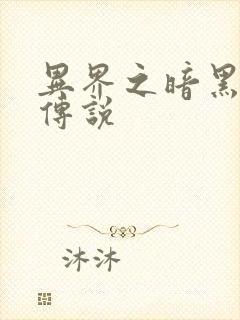 異界之暗黑
傳說
沐沐